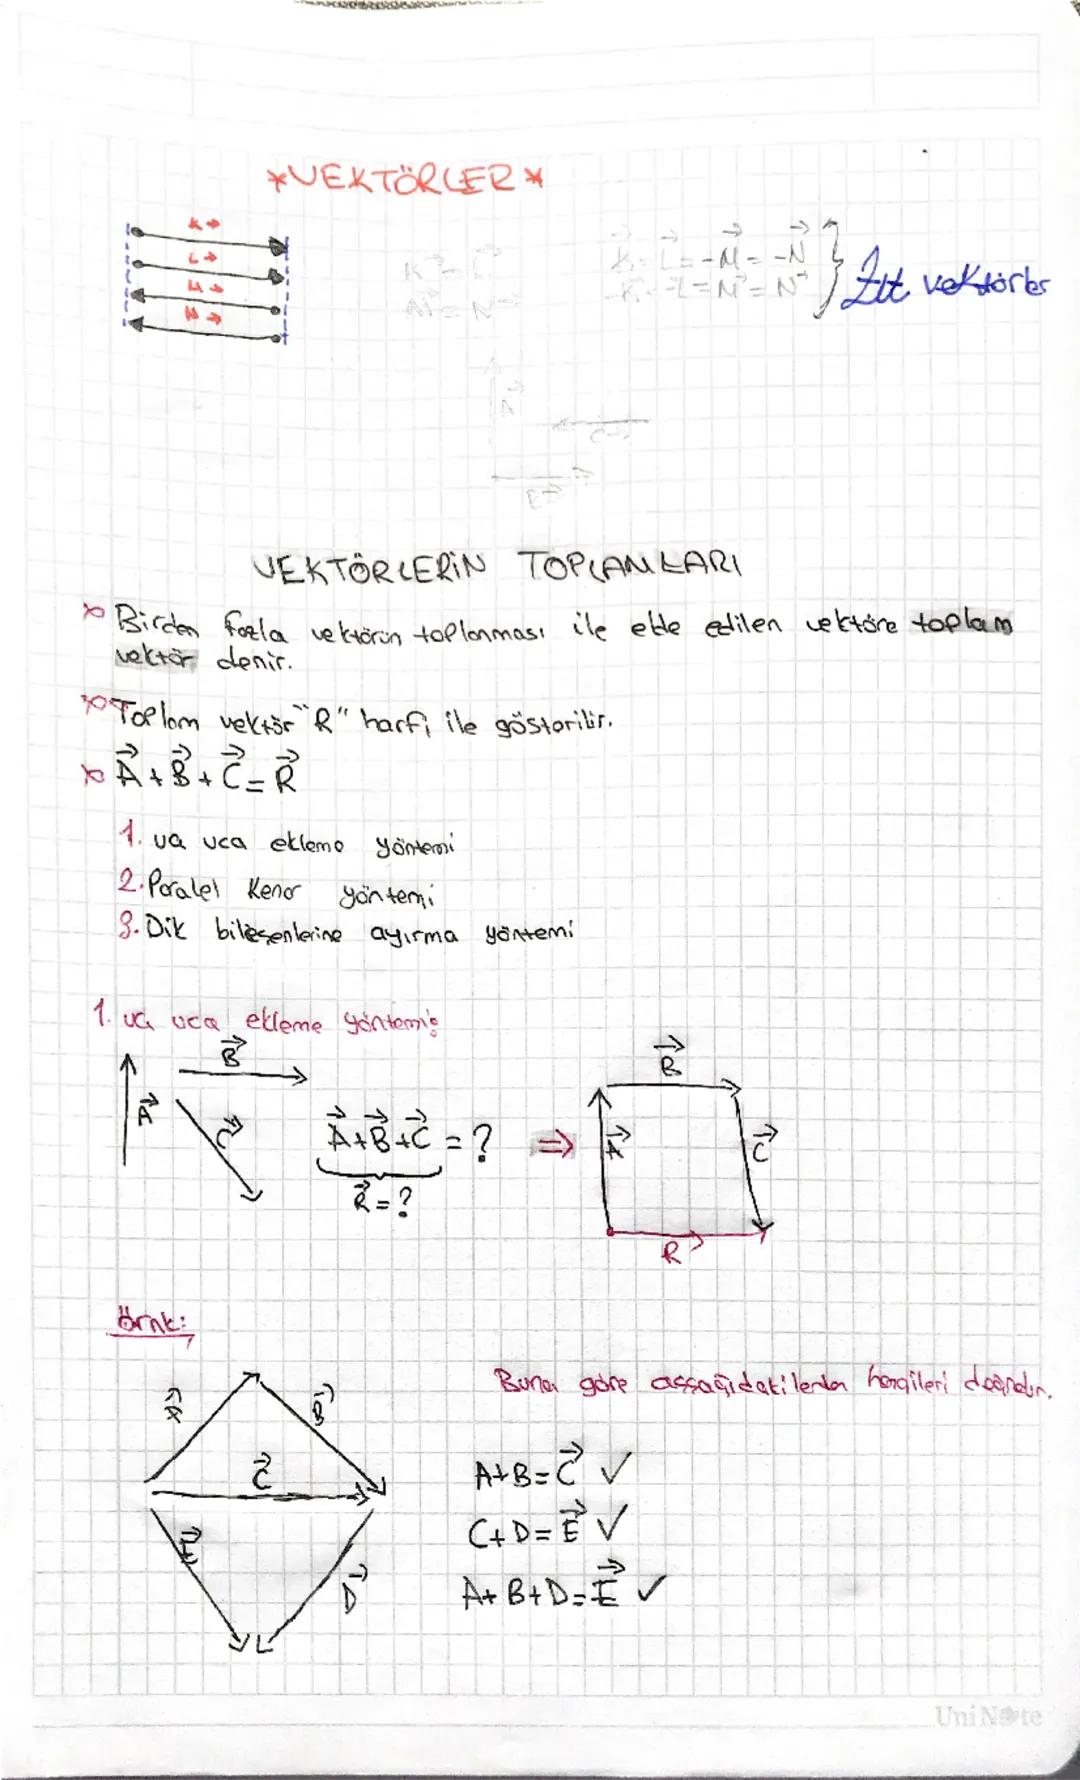 *VEKTÖRLER*
K→
L→
M→
N→
K→ = L→ = -M→ = -N→
-K→ = -L→ = M→ = N→
Zıt vektörler
A→
C→
B→
VEKTÖRLERİN TOPLAMLARI
Birden fazla vektörün toplanması ile elde edilen vektöre toplam
vektör denir.
Toplam vektör "R" harfi ile gösterilir.
A→ + B→ + C→ = R→
1. uç uca ekleme yöntemi
2. Paralel Kenar yöntemi
3. Dik bileşenlerine ayırma yöntemi
1. uç uca ekleme yöntemi:
B→
A→
C→
A→+B→+C→ = ? ⇒
R→ = ?
B→
A→
C→
R→
Örnk:
Buna göre aşşağıdakilerden hangileri doğrudur.
A→
B→
C→
E→
D→
A+B=C→ ✓
C+D=E→ ✓
A+B+D=E→ ✓
UniNote